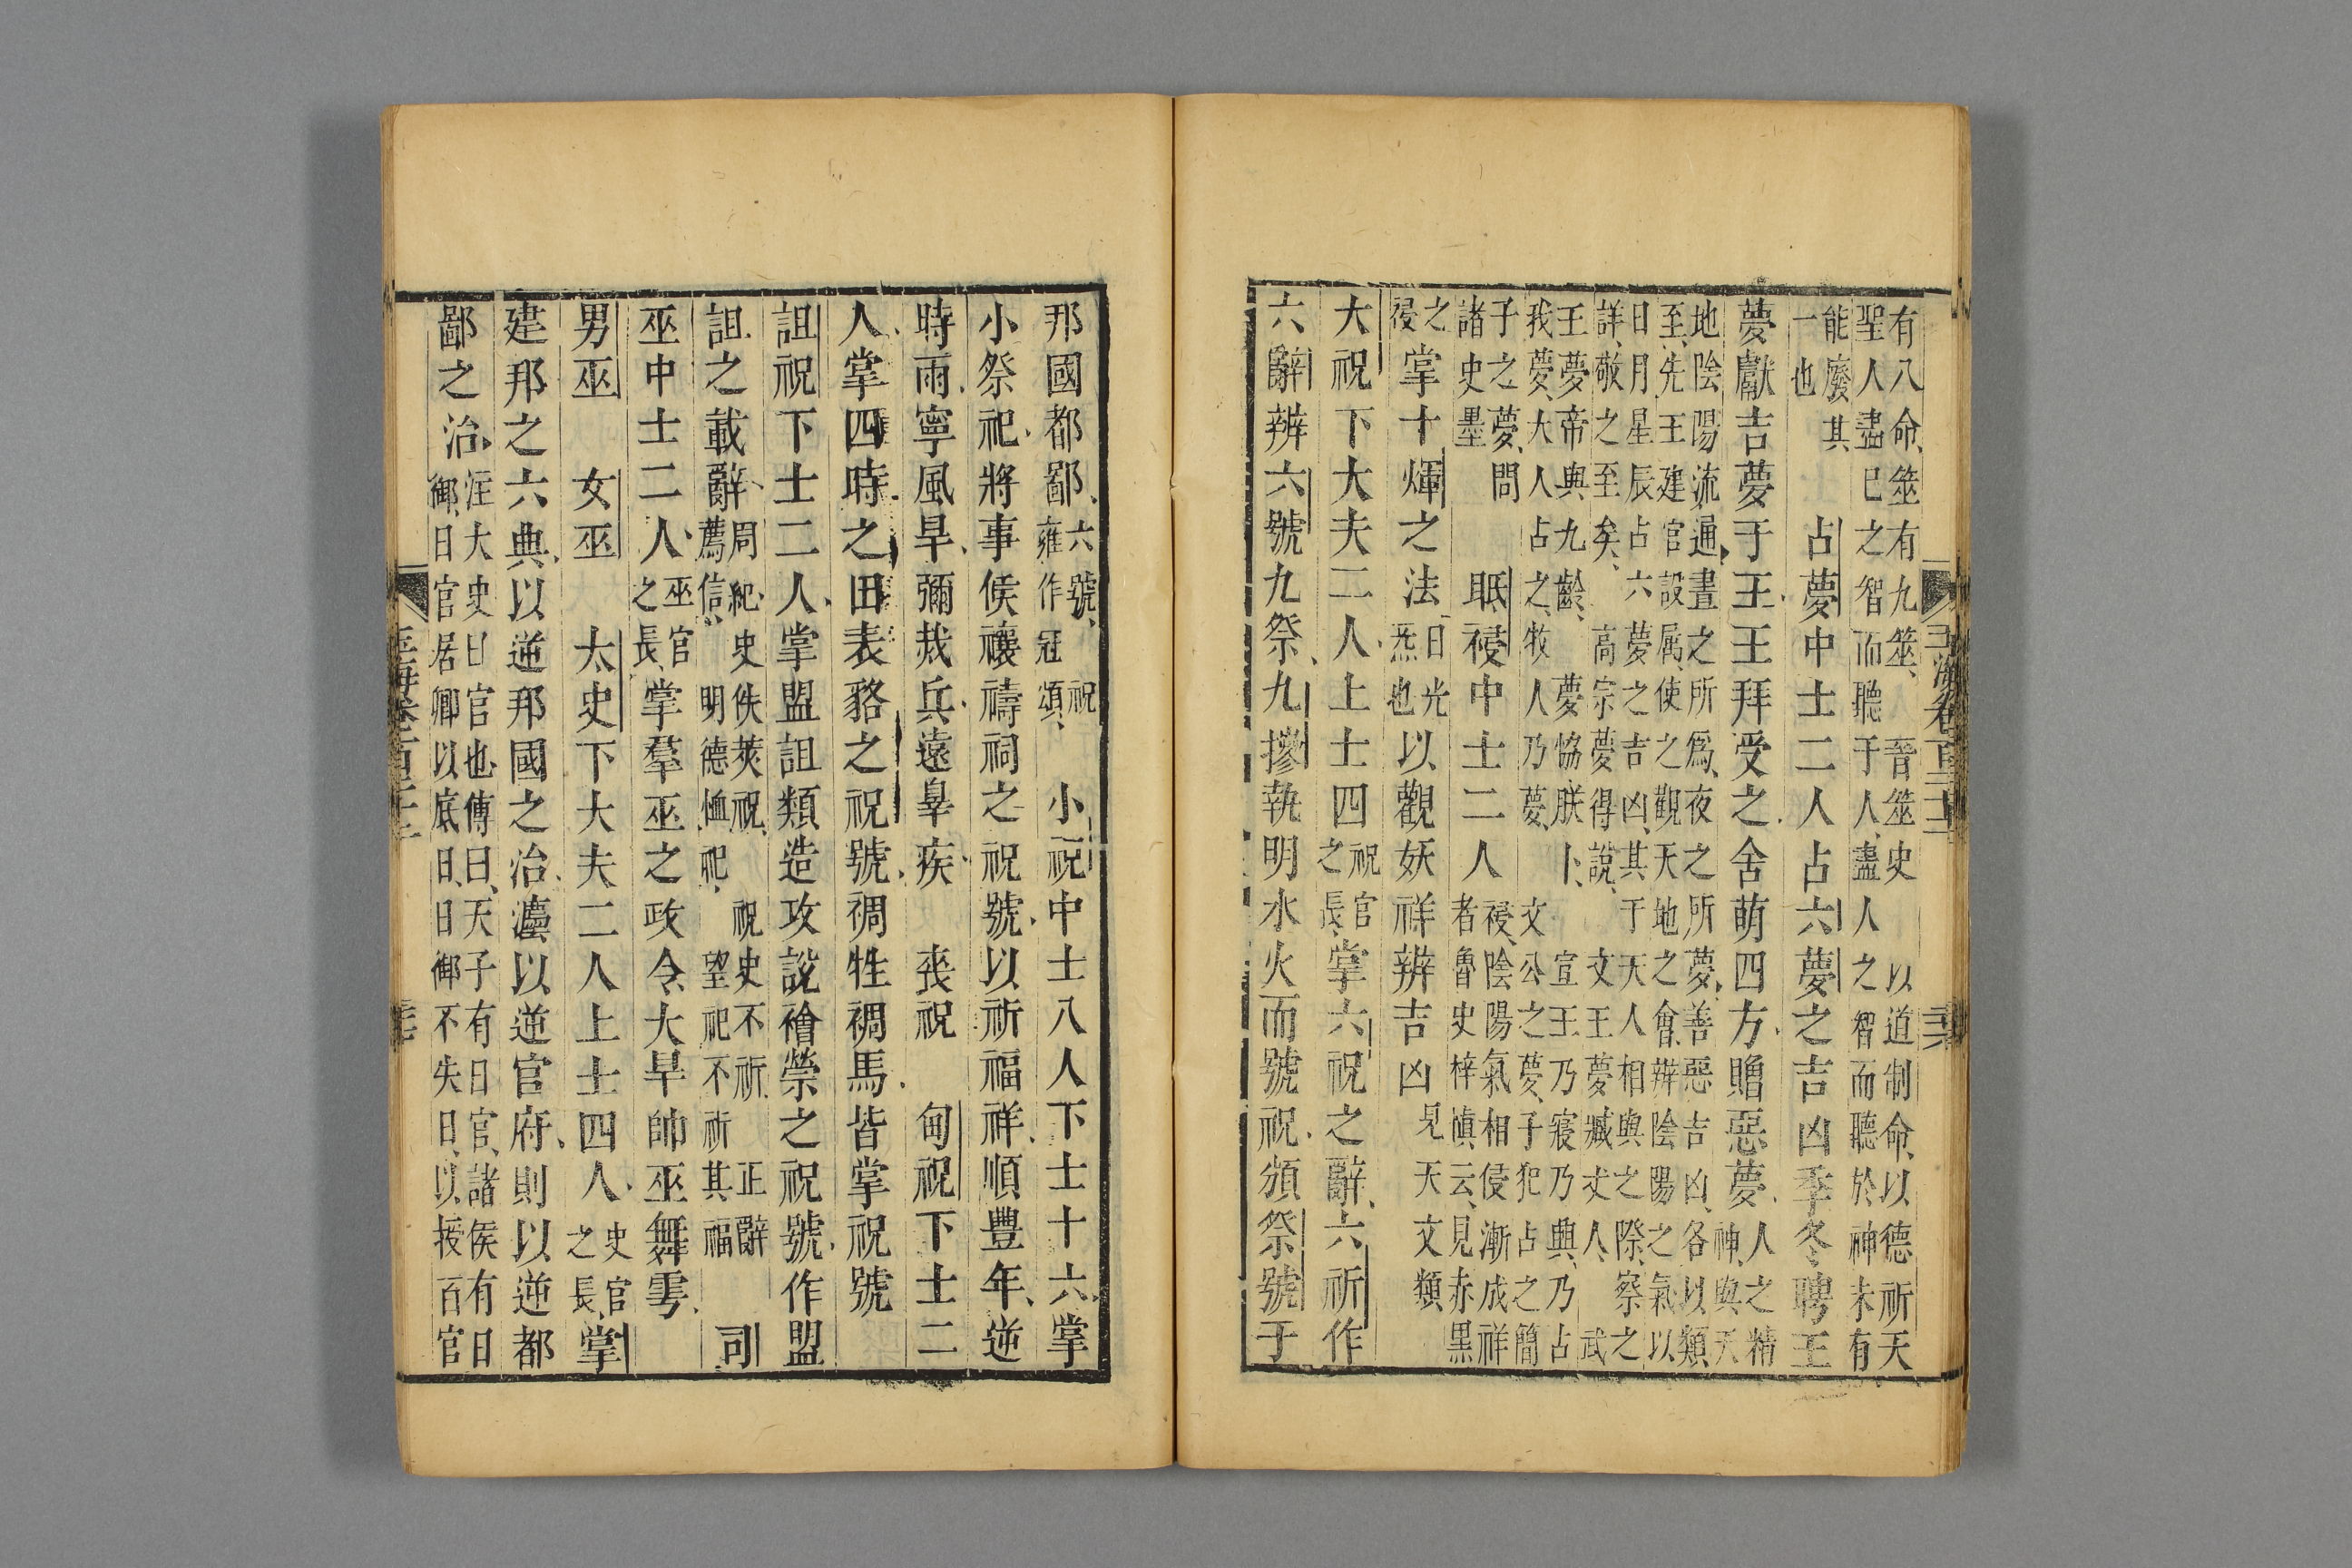 有八命、筮有九筮、晉筮史　以道制命、以德祈天
聖人盡已之智而聽于人、盡人之智而聽於神未有
能廢其
一也
占夢中士二人占六夢之吉凶季冬聘王
夢獻吉夢于王王拜受之舍萌四方贈惡夢
人之精
神與天
地陰陽流通晝之所爲、夜之所夢、善惡吉凶、各以類
至、先王建官設属、使之觀天地之會、辨陰陽之氣以
日月星辰占六夢之吉凶、其于天人相與之際、察之
詳、敬之至矣、　高宗夢得說、　文王夢臧丈人、　武
王夢帝與九齡、　夢協朕卜、　宣王乃寢乃興、乃占
我夢、大人占之、牧人乃夢、　文公之夢、子犯占之簡
子之夢、問
諸史墨
眡祲中士二人
祲、陰陽氣相侵漸成祥
者魯史梓慎云、見赤黑
之
祲
掌十煇之法
日光
炁也
以觀妖祥辨吉凶
見天文類
大祝下大夫二人上士四
祝官
之長、
掌六祝之辭、六祈作
六辭辨六號九祭、九摻執明水火而號祝頒祭號于
邦國都鄙、
六號、祝
雍作冠頌、
小祝中士八人下士十六掌
小祭祀將事侯禳禱祠之祝號以祈福祥、順豊年、逆
時雨寧風旱、彌烖兵、遠辠疾　喪祝　甸祝下士二
人掌四時之田表貉之祝號禂牲禂馬皆掌祝號
詛祝下士二人掌盟詛類造攻說禬禜之祝號作盟
詛之載辭、
周紀、史佚䇲祝、　祝史不祈、　正辭
薦信、　明德恤祀、　望祀不祈　其福
司
巫中士二人、
巫官
之長
掌羣巫之政令大旱帥巫舞雩
男巫　女巫　太史下大夫二人上士四人
史官
之長、
掌
建邦之六典、以逆邦國之治灋以逆官府、則以逆都
鄙之治
注大史日官也、傳曰、天子有日官、諸侯有日
御、日官居卿以底日、日御不失日、以授百官